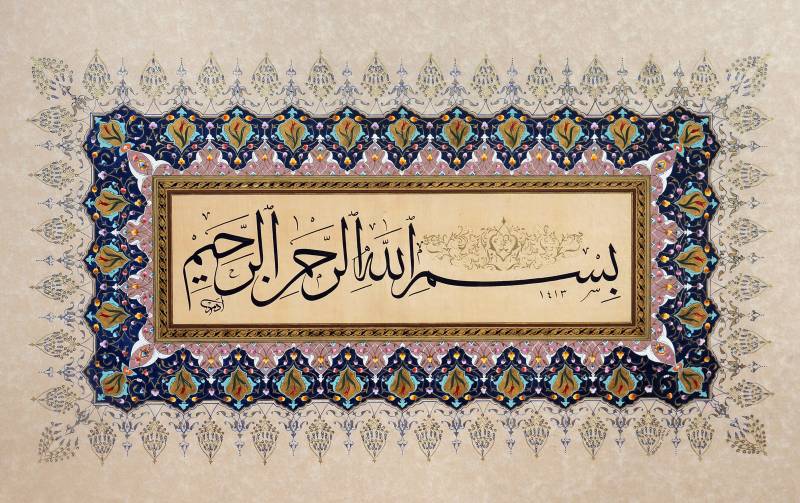 بِسْمِ اللهِ الرَّحْمٰنِ الرَّحِيْمِ
١٤١٣